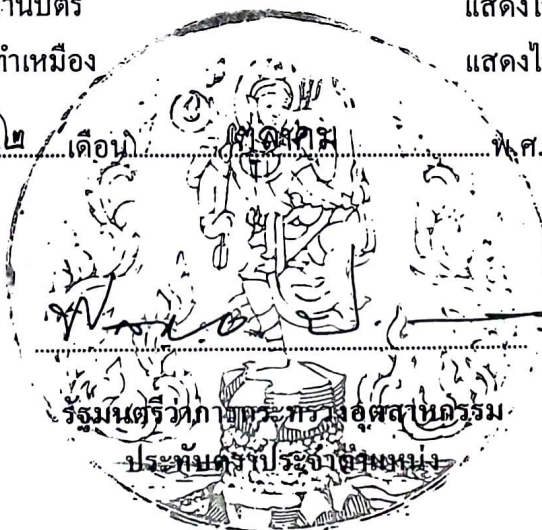 านบัตร แสดงไ
ทำเหมือง แสดงไ
๒ เดือน ตุลาคม พ.ศ.
รัฐมนตรีว่าการกระทรวงอุตสาหกรรม
ประทับตราประจำตำแหน่ง